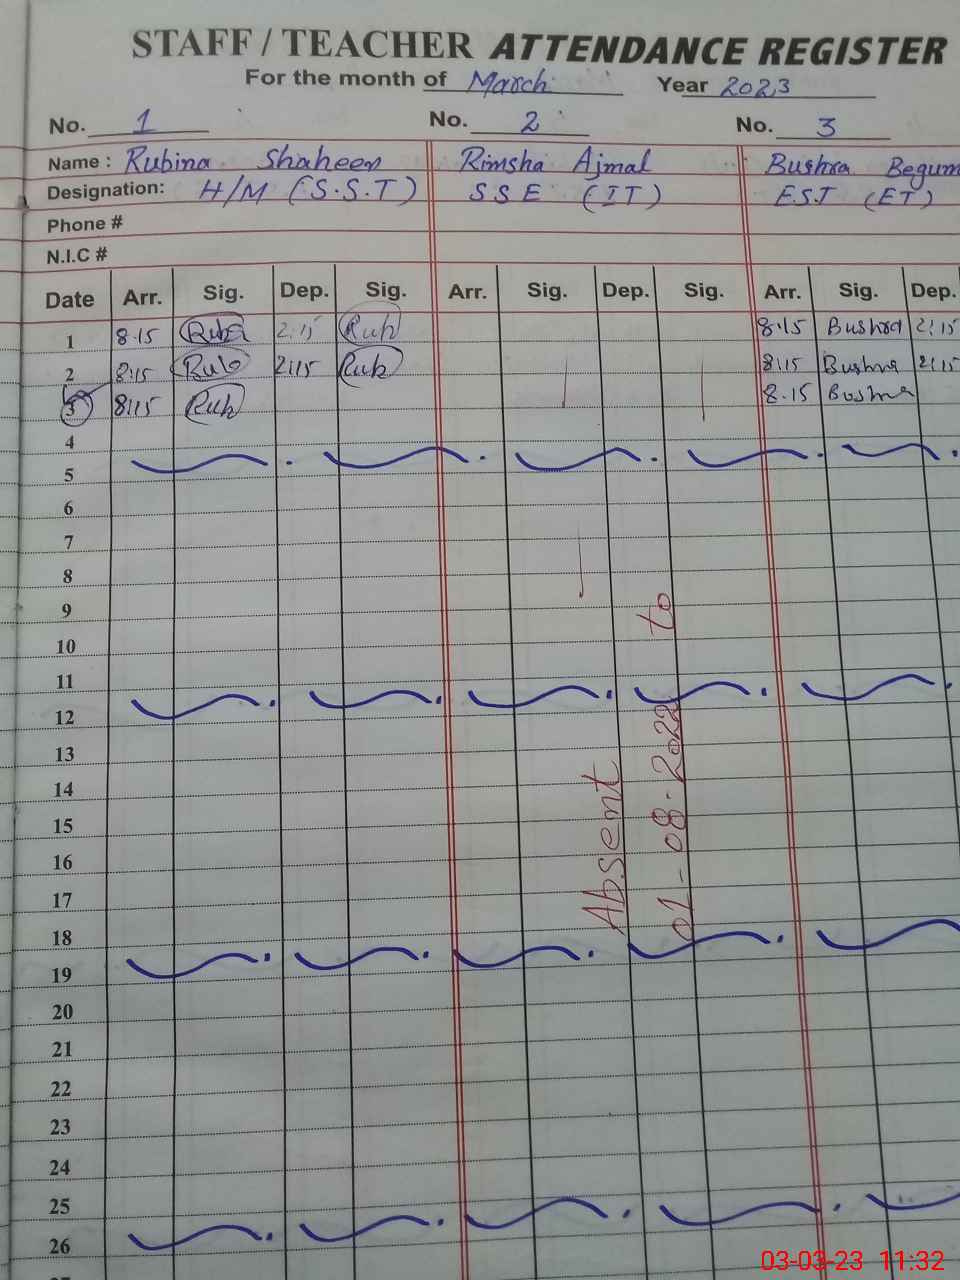 STAFF / TEACHER ATTENDANCE REGISTER
For the month of March Year 2023
No. 1 No. 2 No. 3
Name : Rubina Shaheen Rimsha Ajmal Bushra Begum
Designation: H/M (S.S.T) SSE (IT) E.S.T (ET)
Phone #
N.I.C #
Date Arr. Sig. Dep. Sig. Arr. Sig. Dep. Sig. Arr. Sig. Dep.
1 8:15 Rub 2:15 Rub 8:15 Bushra 2:15
2 8:15 Rub 2:15 Rub 8:15 Bushra 2:15
3 8:15 Rub 8.15 Bushra
4
5
6
7
8
9
10
11
12
13
14
15
16
17
18
19
20
21
22
23
24
25
26
Absent
01-08-2022 to
03-03-23 11:32